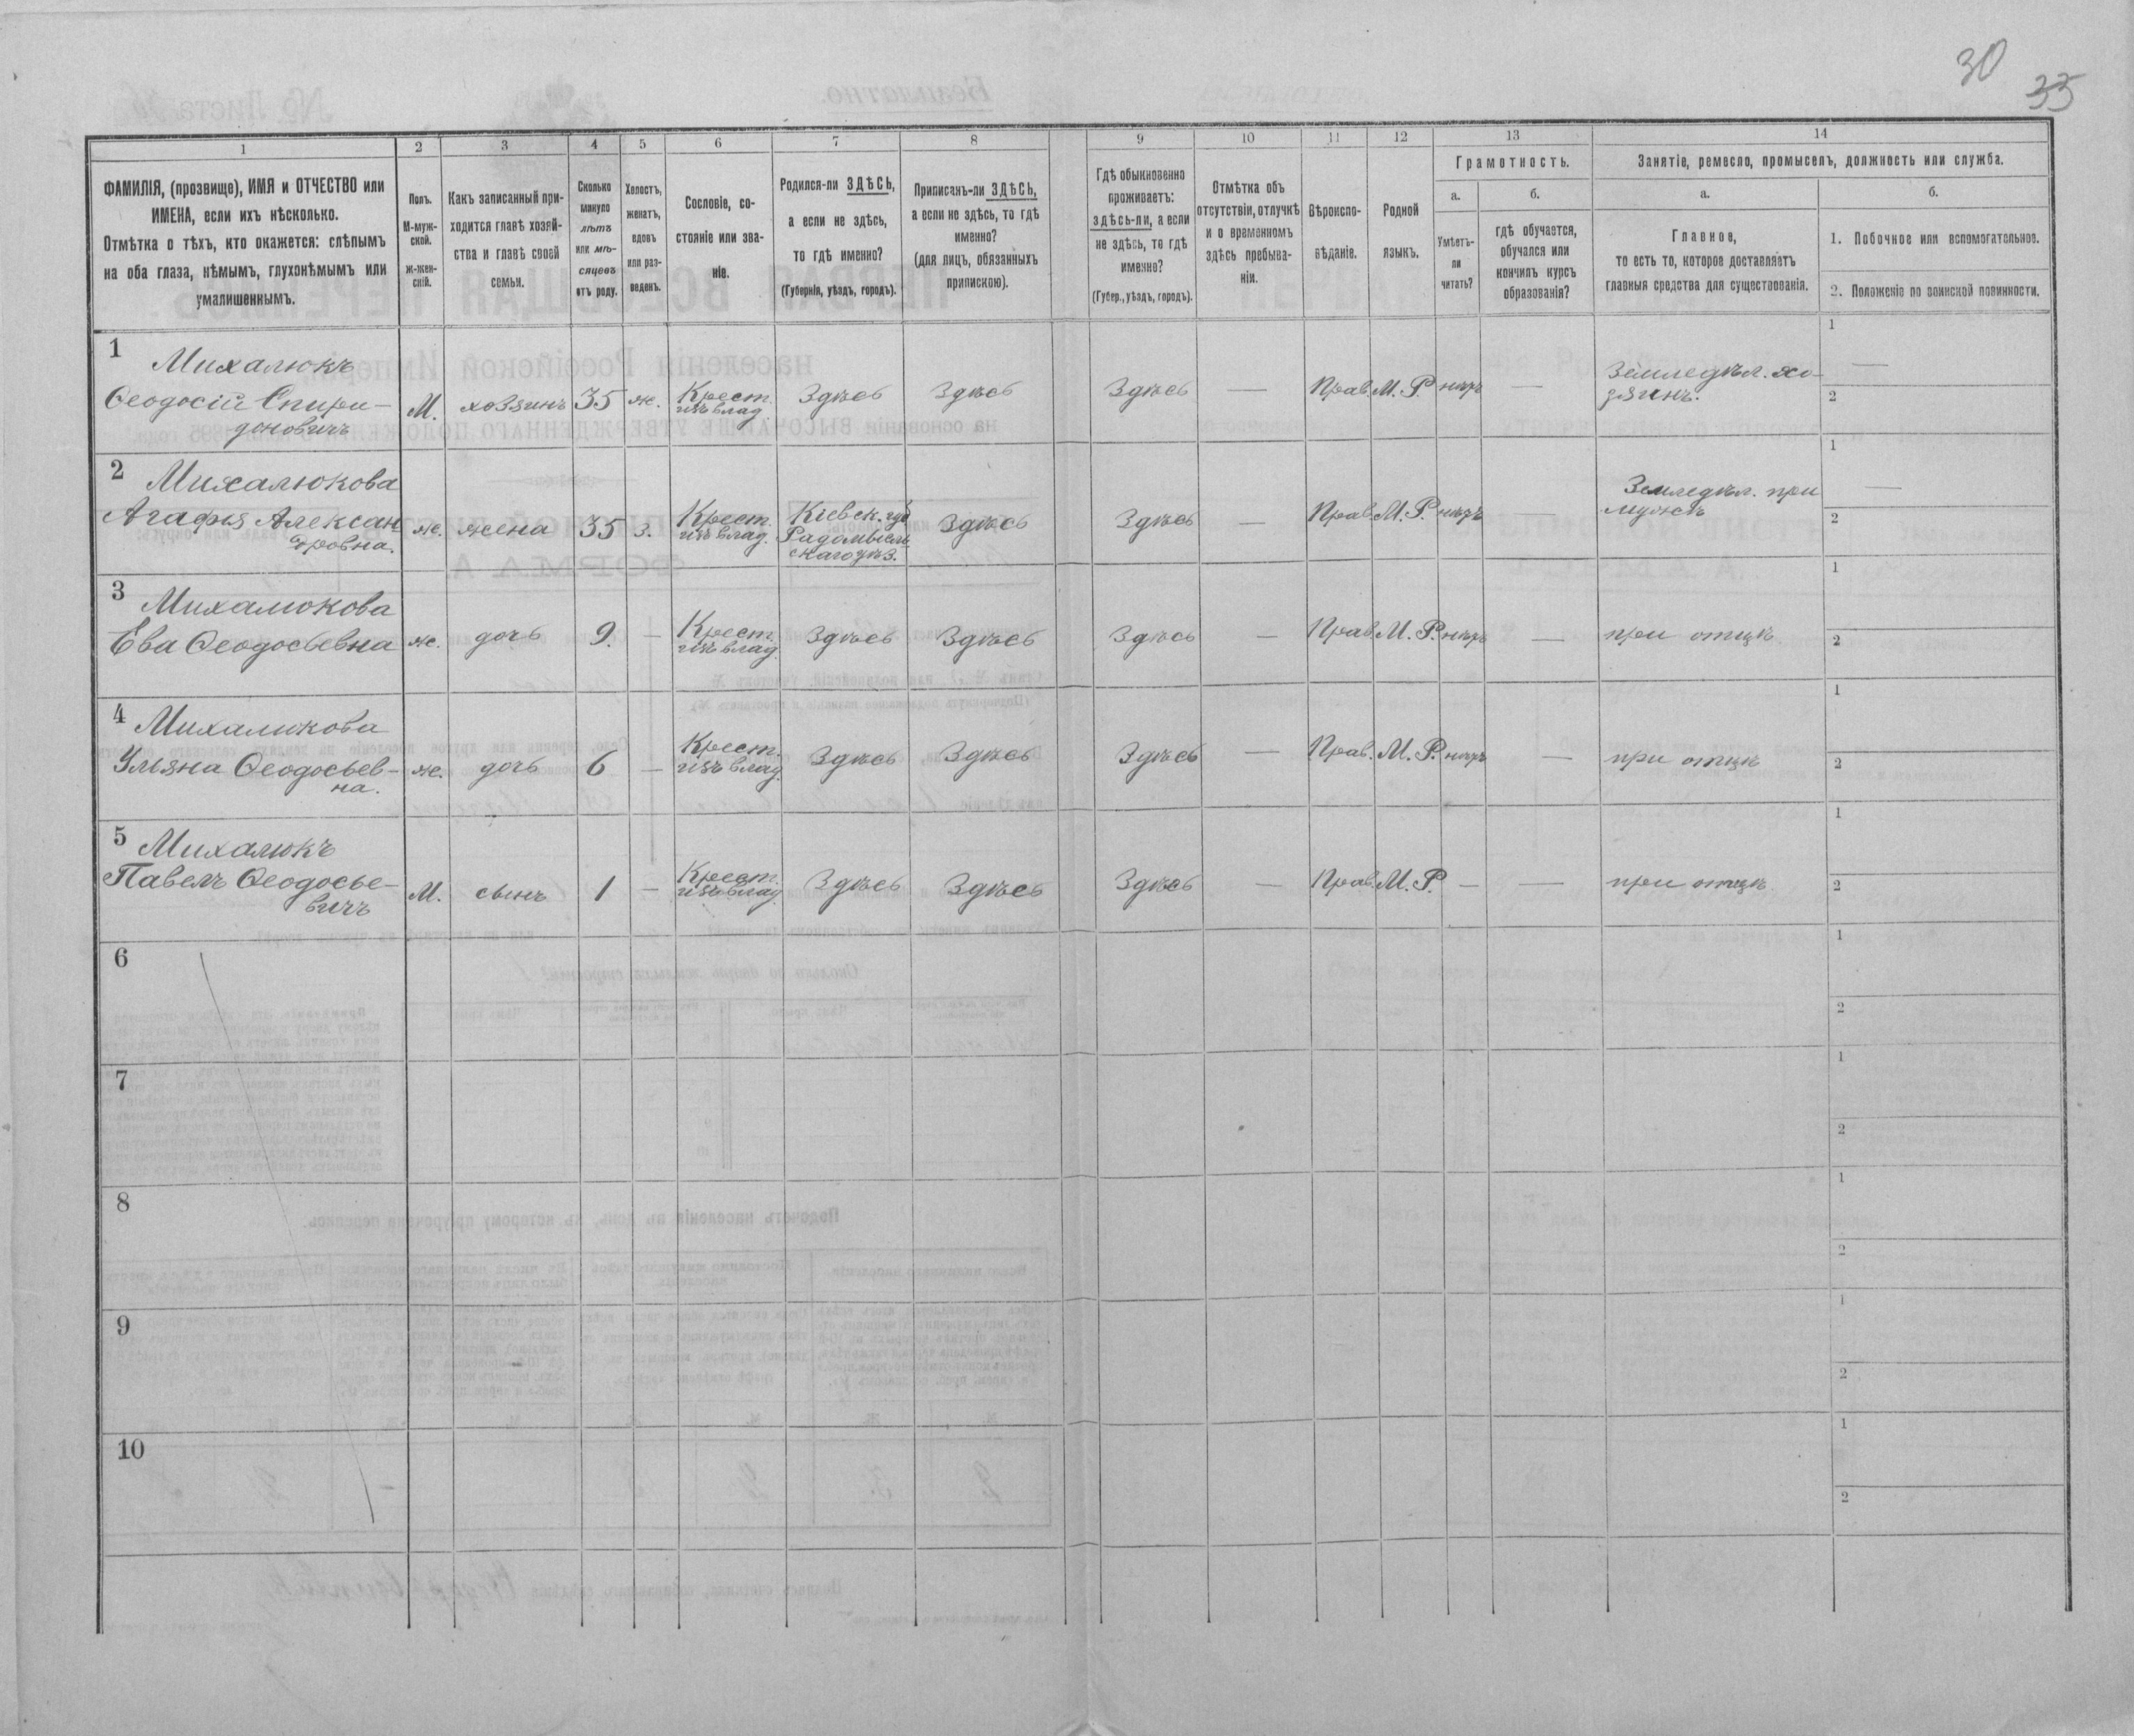 30
33
1
2
3
4
5
6
7
8
9
10
11
12
13
14
ФАМИЛІЯ, (прозвище), ИМЯ и ОТЧЕСТВО или
ИМЕНА, если ихъ нѣсколько.
Отмѣтка о тѣхъ, кто окажется: слѣпымъ
на оба глаза, нѣмымъ, глухонѣмымъ или
умалишеннымъ.
Полъ.
М-муж-
ской.
ж-жен-
скій.
Какъ записанный при-
ходится главѣ хозяй-
ства и главѣ своей
семьи.
Сколько
минуло
лѣтъ
или мѣ-
сяцевъ
отъ роду.
Холостъ,
женатъ,
вдовъ
или раз-
веденъ.
Сословіе, со-
стояніе или зва-
ніе.
Родился-ли ЗДѢСЬ,
а если не здѣсь,
то гдѣ именно?
(Губернія, уѣздъ, городъ).
Приписанъ-ли ЗДѢСЬ,
а если не здѣсь, то гдѣ
именно?
(для лицъ, обязанныхъ
припискою).
Гдѣ обыкновенно
проживаетъ:
здѣсь-ли, а если
не здѣсь, то гдѣ
именно?
(Губер., уѣздъ, городъ).
Отмѣтка объ
отсутствіи, отлучкѣ
и о временномъ
здѣсь пребыва-
ніи.
Вѣроиспо-
вѣданіе.
Родной
языкъ.
Грамотность.
а.
Умѣетъ-
ли
читать?
б.
гдѣ обучается,
обучался или
кончилъ курсъ
образованія?
Занятіе, ремесло, промыселъ, должность или служба.
а.
Главное,
то есть то, которое доставляетъ
главныя средства для существованія.
б.
1. Побочное или вспомогательное.
2. Положеніе по воинской повинности.
1
Михалюкъ
Ѳеодосій Спири-
доновичъ
М.
хозяинъ
35
ж.
Крест.
изъ влад.
Здѣсь
Здѣсь
Здѣсь
—
Прав.
М. Р.
нѣтъ
—
Земледѣл. хо-
зяинъ.
1
—
2
2
Михалюкова
Агафья Алексан
дровна.
ж.
жена
35
з.
Крест.
изъ влад.
Кіевск. губ
Радомысль
скаго уѣз.
Здѣсь
Здѣсь
—
Прав.
М. Р.
нѣтъ
—
Земледѣл. при
мужѣ
1
—
2
3
Михалюкова
Ева Ѳеодосьевна
ж.
дочь
9.
—
Крест.
изъ влад.
Здѣсь
Здѣсь
Здѣсь
—
Прав.
М. Р.
нѣтъ
—
при отцѣ
1
2
4
Михалюкова
Ульяна Ѳеодосьев-
на.
ж.
дочь
6
—
Крест.
изъ влад.
Здѣсь
Здѣсь
Здѣсь
—
Прав.
М. Р.
нѣтъ
—
при отцѣ
1
2
5
Михалюкъ
Павелъ Ѳеодосье-
вичъ
М.
сынъ
1
—
Крест.
изъ влад.
Здѣсь
Здѣсь
Здѣсь
—
Прав.
М. Р.
—
—
при отцѣ
1
2
6
1
2
7
1
2
8
1
2
9
1
2
10
1
2